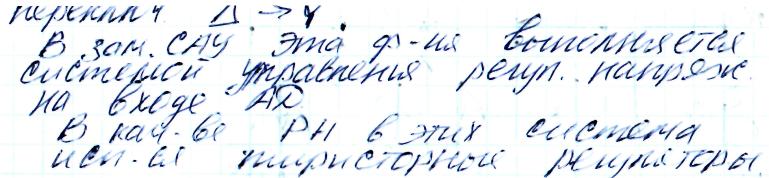 переключ. Δ → Y
В зам. САУ эта ф-ия выполняется
системой управления регул. напряж.
на входе АД
В кач-ве РН в этих система
исп-ся тиристорные регуляторы